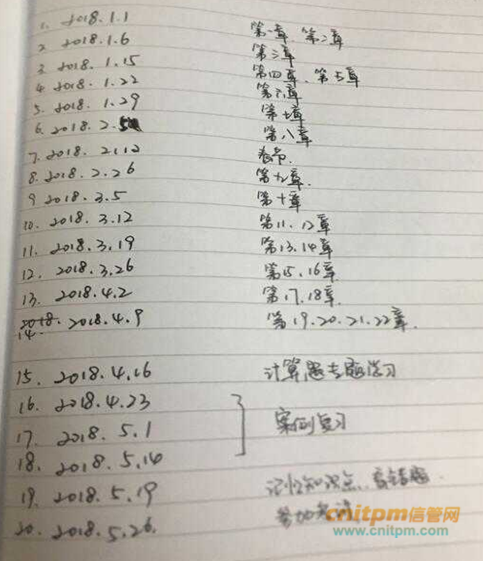 1. 2018.1.1 第一章、第二章
2 2018.1.6 第三章
3 2018.1.15 第四章、第五章
4 2018.1.22 第六章
5. 2018.1.29 第七章
6. 2018.2.5 第八章
7. 2018.2.12 春节
8. 2018.2.26 第九章.
9 2018.3.5 第十章
10. 2018.3.12 第11.12章
11. 2018.3.19 第13.14章
12. 2018.3.26 第15.16章
13. 2018.4.2 第17.18章
14. 2018.4.9 第19.20.21.22章.
15. 2018.4.16 计算题专题学习
16. 2018.4.23
17. 2018.5.1 案例复习
18. 2018.5.14
19. 2018.5.19 记忆知识点、看错题.
20. 2018.5.26. 参加考试
cnitpm信管网
www.cnitpm.com